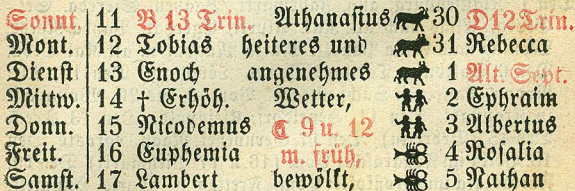 Sonnt. 11 B 13 Trin. Athanasius 30 D12Trin.
Mont. 12 Tobias heiteres und 31 Rebecca
Dienst 13 Enoch angenehmes 1 Alt. Sept.
Mittw. 14 † Erhöh. Wetter, 2 Ephraim
Donn. 15 Nicodemus ☾ 9 u. 12 3 Albertus
Freit. 16 Euphemia m. früh, 4 Rosalia
Samst. 17 Lambert bewölkt, 5 Nathan